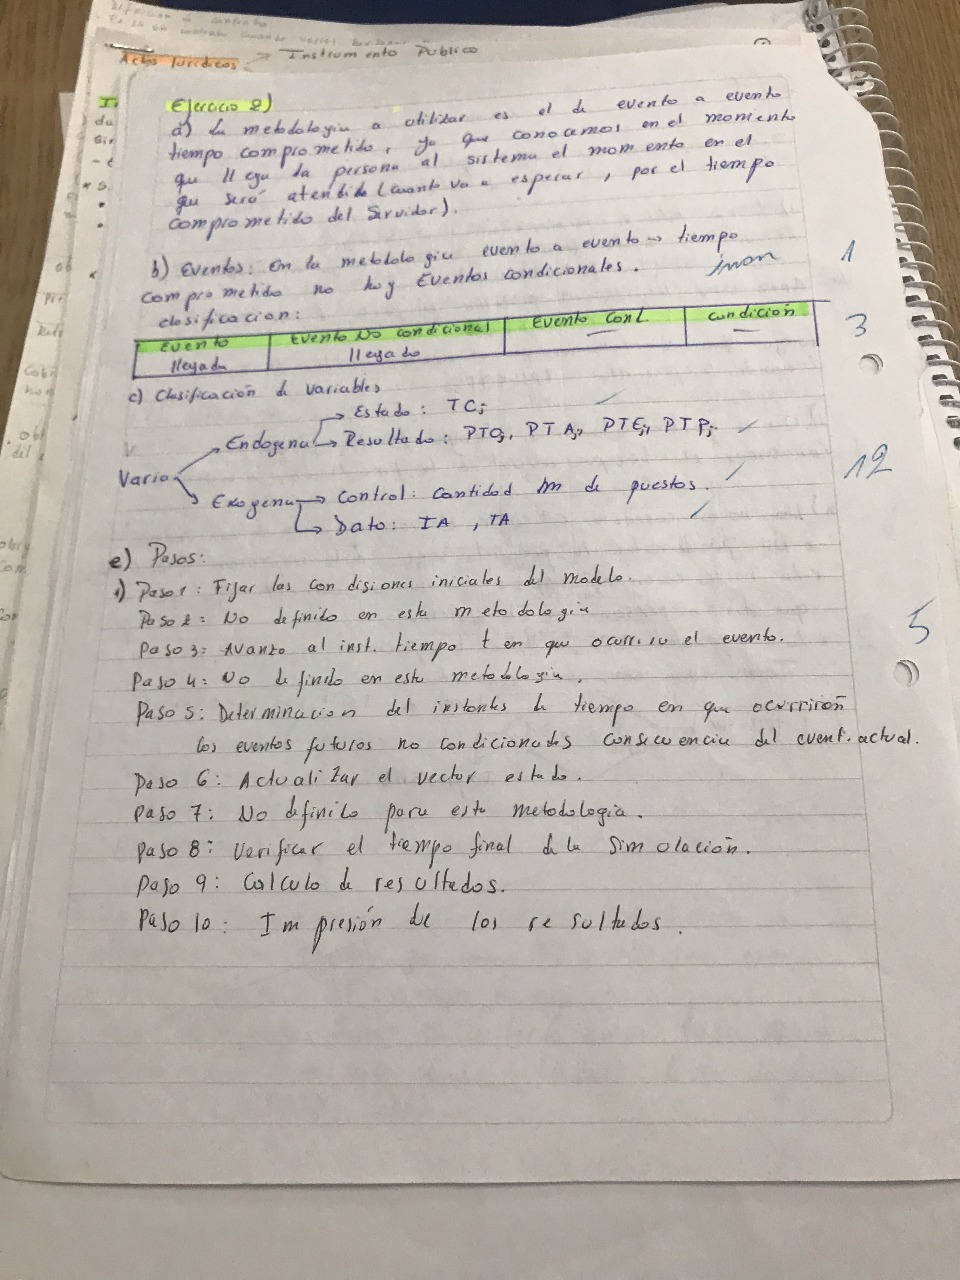 Actos Jurídicos → Instrumento Público
Ejercicio 2)
a) La metodologia a utilizar es el de evento a evento
tiempo comprometido, ya que conocemos en el momento
que llega la persona al sistema el momento en el
que será atendido (cuanto va a esperar, por el tiempo
comprometido del Servidor).
b) Eventos: En la metodologia evento a evento → tiempo
comprometido no hay Eventos condicionales.
1
clasificacion:
Evento Evento No condicional Evento Cond. condición
llegada llegada — —
3
c) Clasificación de variables
→ Estado: TCj
Endogena → Resultado: PTOj, PTAj, PTEj, PTPj
Varia
Exogena → Control: Cantidad m de puestos.
12
→ Dato: IA, TA
e) Pasos:
1) Paso 1: Fijar las condisiones iniciales del modelo.
Paso 2: No definido en esta metodologia
5
Paso 3: Avanzo al inst. tiempo t en que ocurrira el evento.
Paso 4: No definido en esta metodologia.
Paso 5: Determinacion del instantes de tiempo en que ocurriron
los eventos futuros no condicionados consecuencia del event. actual.
Paso 6: Actualizar el vector estado.
Paso 7: No definido para esta metodologia.
Paso 8: Verificar el tiempo final de la simolación.
Paso 9: Calculo de resultados.
Paso 10: Impresión de los resultados.